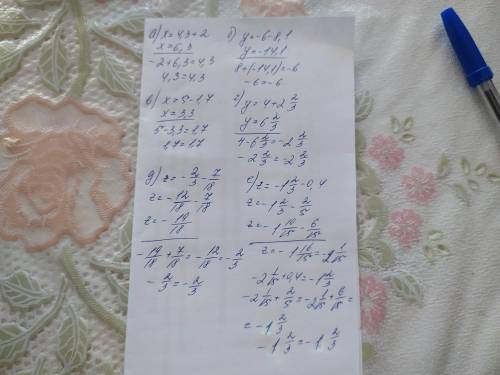 а) x=4,3+2
x=6,3
-2+6,3=4,3
4,3=4,3
б) y=-6-8,1
y=-14,1
8+(-14,1)=-6
-6=-6
в) x=5-1,7
x=3,3
5-3,3=1,7
1,7=1,7
г) y=4+2 2/3
y=6 2/3
4-6 2/3=-2 2/3
-2 2/3=-2 2/3
д) z=-2/3-7/18
z=-12/18-7/18
z=-19/18
-19/18+7/18=-12/18=-2/3
-2/3=-2/3
е) z=-1 2/3-0,4
z=-1 2/3-2/5
z=-1 10/15-6/15
z=-1 16/15=-2 1/15
-2 1/15+0,4=-1 2/3
-2 1/15+2/5=-2 1/15+6/15=
=-1 2/3
-1 2/3=-1 2/3